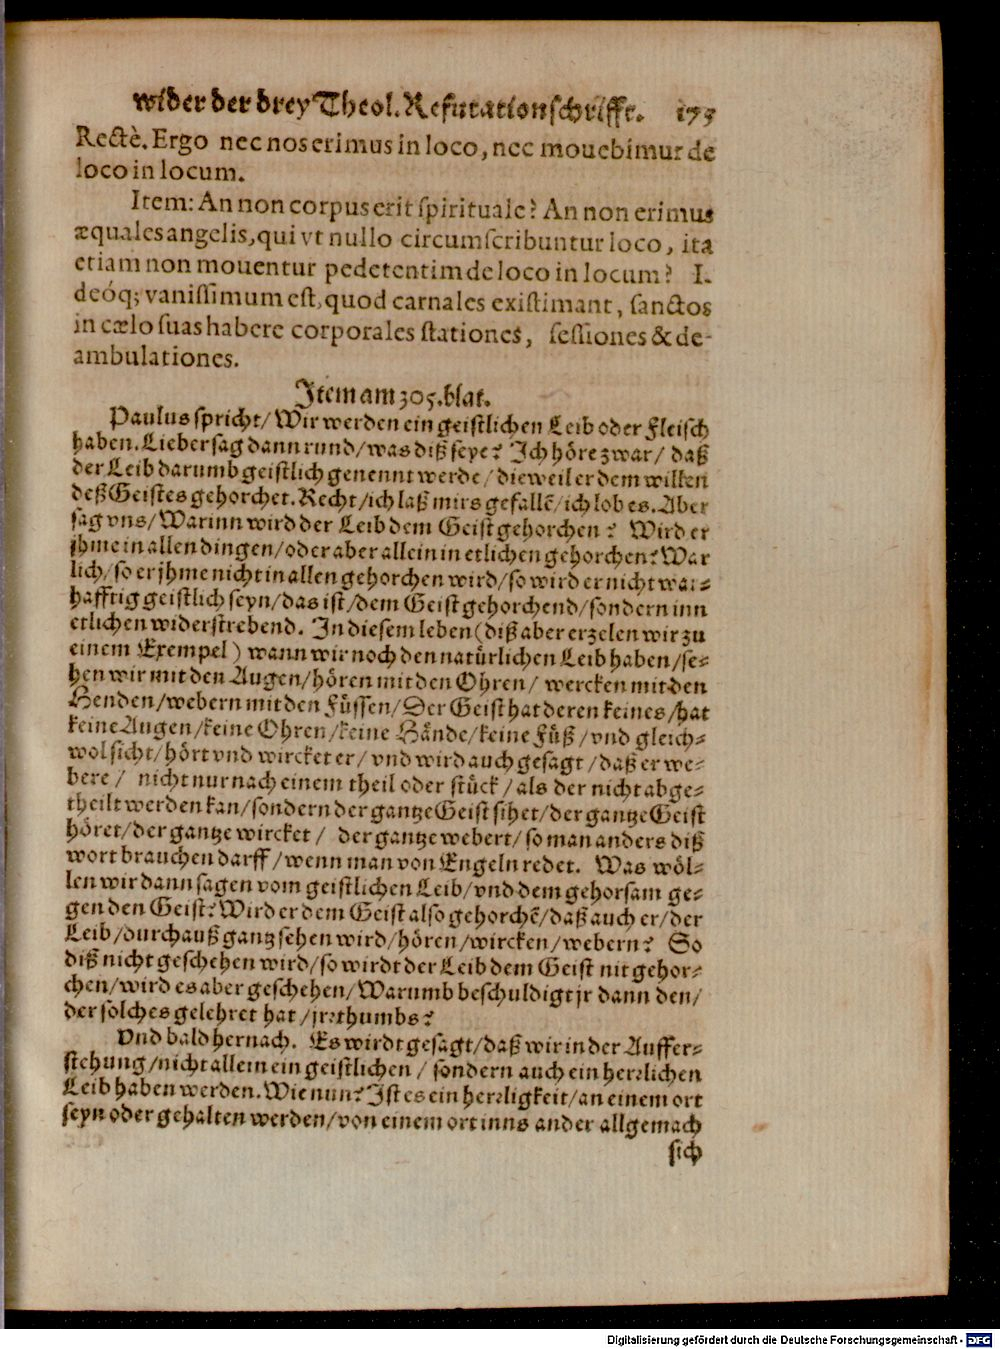 wider der drey Theol. Refutationschrifft. 173
Rectè. Ergo nec nos erimus in loco, nec mouebimur de
loco in locum.
Item: An non corpus erit spirituale? An non erimus
æquales angelis, qui vt nullo circumscribuntur loco, ita
etiam non mouentur pedetentim de loco in locum? I.
deóq; vanissimum est, quod carnales existimant, sanctos
in cælo suas habere corporales stationes, sessiones & de-
ambulationes.
Item am 305. blat.
Paulus spricht/ Wir werden ein geistlichen Leib oder Fleisch
haben. Lieber sag dann rund/ was diß seye? Ich höre zwar/ daß
der Leib darumb geistlich genennt werde/ dieweil er dem willen
deß Geistes gehorchet. Recht/ ich laß mirs gefallẽ/ ich lob es. Aber
sag vns/ Warinn wird der Leib dem Geist gehorchen? Wird er
jhme in allen dingen/ oder aber allein in etlichen gehorchen? War
lich/ so er jhme nicht in allen gehorchen wird/ so wird er nicht war-
hafftig geistlich seyn/ das ist/ dem Geist gehorchend/ sondern inn
etlichen widerstrebend. In diesem leben (diß aber erzelen wir zu
einem Exempel) wann wir noch den natürlichen Leib haben/ se-
hen wir mit den Augen/ hören mit den Ohren/ wercken mit den
Henden/ webern mit den Füssen/ Der Geist hat deren keines/ hat
keine Augen/ keine Ohren/ keine Hände/ keine Füß/ vnd gleich-
wol sicht/ hört vnd wircket er/ vnd wird auch gesagt/ daß er we-
bere/ nicht nur nach einem theil oder stück/ als der nicht abge-
theilt werden kan/ sondern der gantze Geist sihet/ der gantze Geist
höret/ der gantze wircket/ der gantze webert/ so man anders diß
wort brauchen darff/ wenn man von Engeln redet. Was wöl-
len wir dann sagen vom geistlichen Leib/ vnd dem gehorsam ge-
gen den Geist? Wird er dem Geist also gehorchẽ/ daß auch er/ der
Leib/ durchauß gantz sehen wird/ hören/ wircken/ webern? So
diß nicht geschehen wird/ so wirdt der Leib dem Geist nit gehor-
chen/ wird es aber geschehen/ Warumb beschuldigt jr dann den/
der solches gelehret hat/ jrrthumbs?
Vnd bald hernach. Es wirdt gesagt/ daß wir in der Auffer-
stehung/ nicht allein ein geistlichen/ sondern auch ein herrlichen
Leib haben werden. Wie nun? Ist es ein herrligkeit/ an einem ort
seyn oder gehalten werden/ von einem ort inns ander allgemach
sich
Digitalisierung gefördert durch die Deutsche Forschungsgemeinschaft - DFG